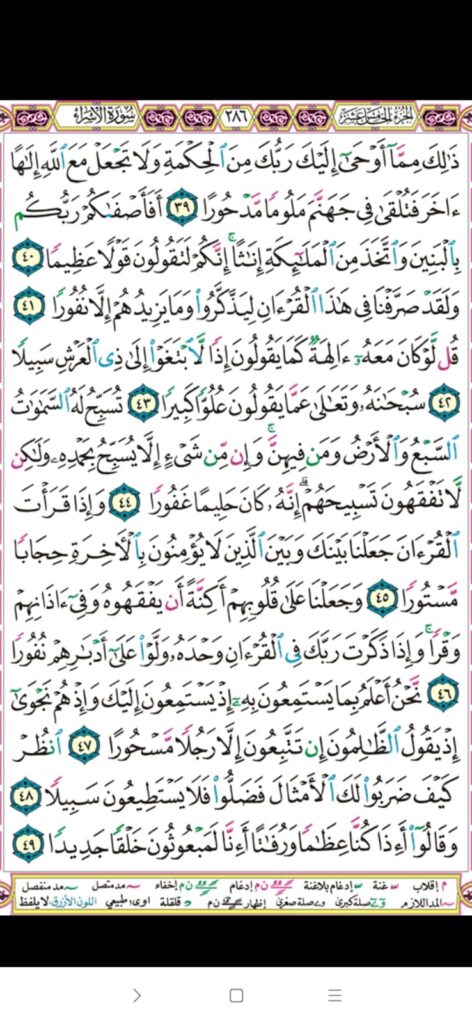 سُورَةُ الإِسْرَاء ٢٨٦ الجزء الخامس عشر
ذَٰلِكَ مِمَّآ أَوْحَىٰٓ إِلَيْكَ رَبُّكَ مِنَ ٱلْحِكْمَةِ وَلَا تَجْعَلْ مَعَ ٱللَّهِ إِلَٰهًا
ءَاخَرَ فَتُلْقَىٰ فِى جَهَنَّمَ مَلُومًا مَّدْحُورًا ٣٩ أَفَأَصْفَىٰكُمْ رَبُّكُم
بِٱلْبَنِينَ وَٱتَّخَذَ مِنَ ٱلْمَلَٰٓئِكَةِ إِنَٰثًا ۚ إِنَّكُمْ لَتَقُولُونَ قَوْلًا عَظِيمًا ٤٠
وَلَقَدْ صَرَّفْنَا فِى هَٰذَا ٱلْقُرْءَانِ لِيَذَّكَّرُوا۟ وَمَا يَزِيدُهُمْ إِلَّا نُفُورًا ٤١
قُل لَّوْ كَانَ مَعَهُۥٓ ءَالِهَةٌ كَمَا يَقُولُونَ إِذًا لَّٱبْتَغَوْا۟ إِلَىٰ ذِى ٱلْعَرْشِ سَبِيلًا
٤٢ سُبْحَٰنَهُۥ وَتَعَٰلَىٰ عَمَّا يَقُولُونَ عُلُوًّا كَبِيرًا ٤٣ تُسَبِّحُ لَهُ ٱلسَّمَٰوَٰتُ
ٱلسَّبْعُ وَٱلْأَرْضُ وَمَن فِيهِنَّ ۚ وَإِن مِّن شَىْءٍ إِلَّا يُسَبِّحُ بِحَمْدِهِۦ وَلَٰكِن
لَّا تَفْقَهُونَ تَسْبِيحَهُمْ ۗ إِنَّهُۥ كَانَ حَلِيمًا غَفُورًا ٤٤ وَإِذَا قَرَأْتَ
ٱلْقُرْءَانَ جَعَلْنَا بَيْنَكَ وَبَيْنَ ٱلَّذِينَ لَا يُؤْمِنُونَ بِٱلْءَاخِرَةِ حِجَابًا
مَّسْتُورًا ٤٥ وَجَعَلْنَا عَلَىٰ قُلُوبِهِمْ أَكِنَّةً أَن يَفْقَهُوهُ وَفِىٓ ءَاذَانِهِمْ
وَقْرًا ۚ وَإِذَا ذَكَرْتَ رَبَّكَ فِى ٱلْقُرْءَانِ وَحْدَهُۥ وَلَّوْا۟ عَلَىٰٓ أَدْبَٰرِهِمْ نُفُورًا
٤٦ نَّحْنُ أَعْلَمُ بِمَا يَسْتَمِعُونَ بِهِۦٓ إِذْ يَسْتَمِعُونَ إِلَيْكَ وَإِذْ هُمْ نَجْوَىٰٓ
إِذْ يَقُولُ ٱلظَّٰلِمُونَ إِن تَتَّبِعُونَ إِلَّا رَجُلًا مَّسْحُورًا ٤٧ ٱنظُرْ
كَيْفَ ضَرَبُوا۟ لَكَ ٱلْأَمْثَالَ فَضَلُّوا۟ فَلَا يَسْتَطِيعُونَ سَبِيلًا ٤٨
وَقَالُوٓا۟ أَءِذَا كُنَّا عِظَٰمًا وَرُفَٰتًا أَءِنَّا لَمَبْعُوثُونَ خَلْقًا جَدِيدًا ٤٩
م إقلاب غنة إدغام بلاغنة ن م إدغام ن م إخفاء مد متصل مد منفصل
المد اللازم صلة كبرى صلة صغرى إظهار ن م قلقلة اوى: طبيعي اللون الأزرق: لا يلفظ